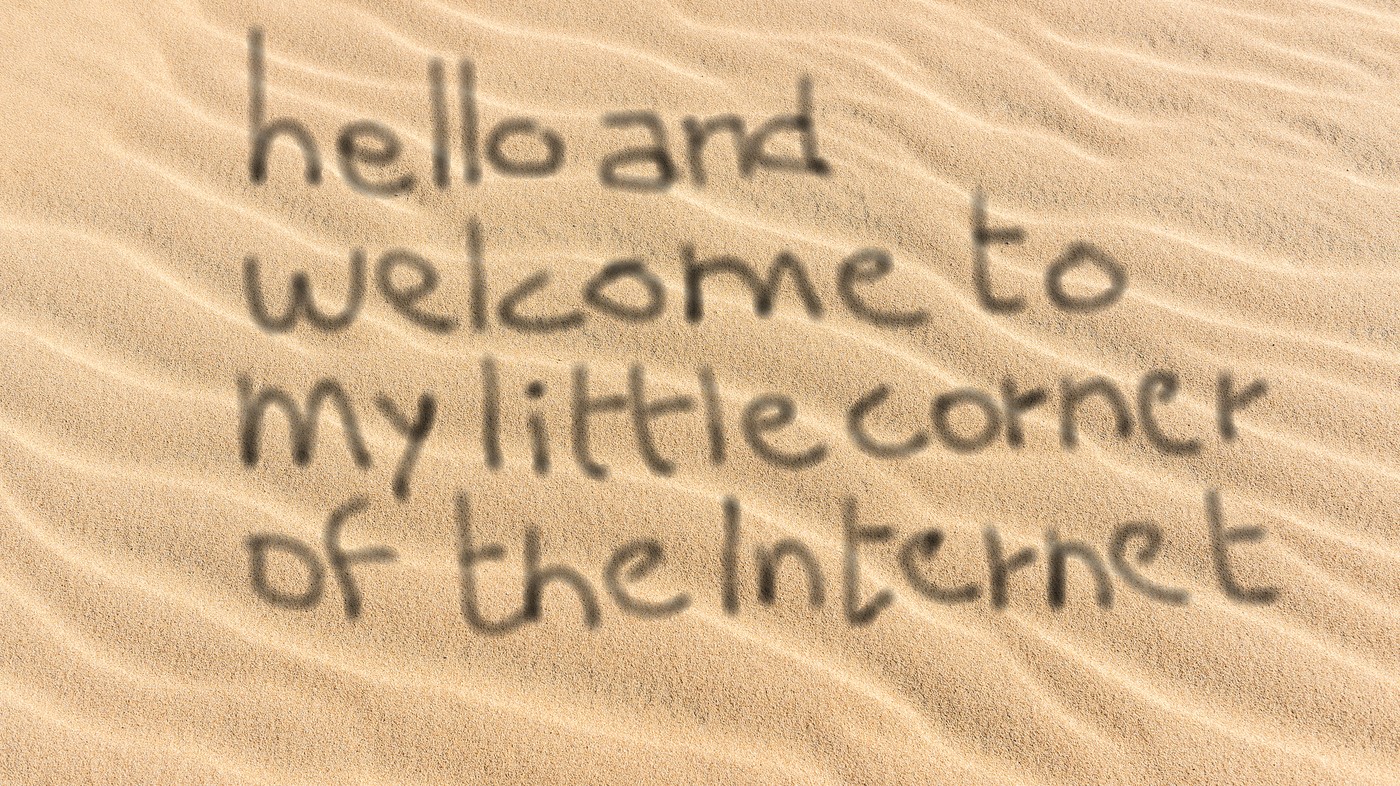 hello and
welcome to
my little corner
of the Internet